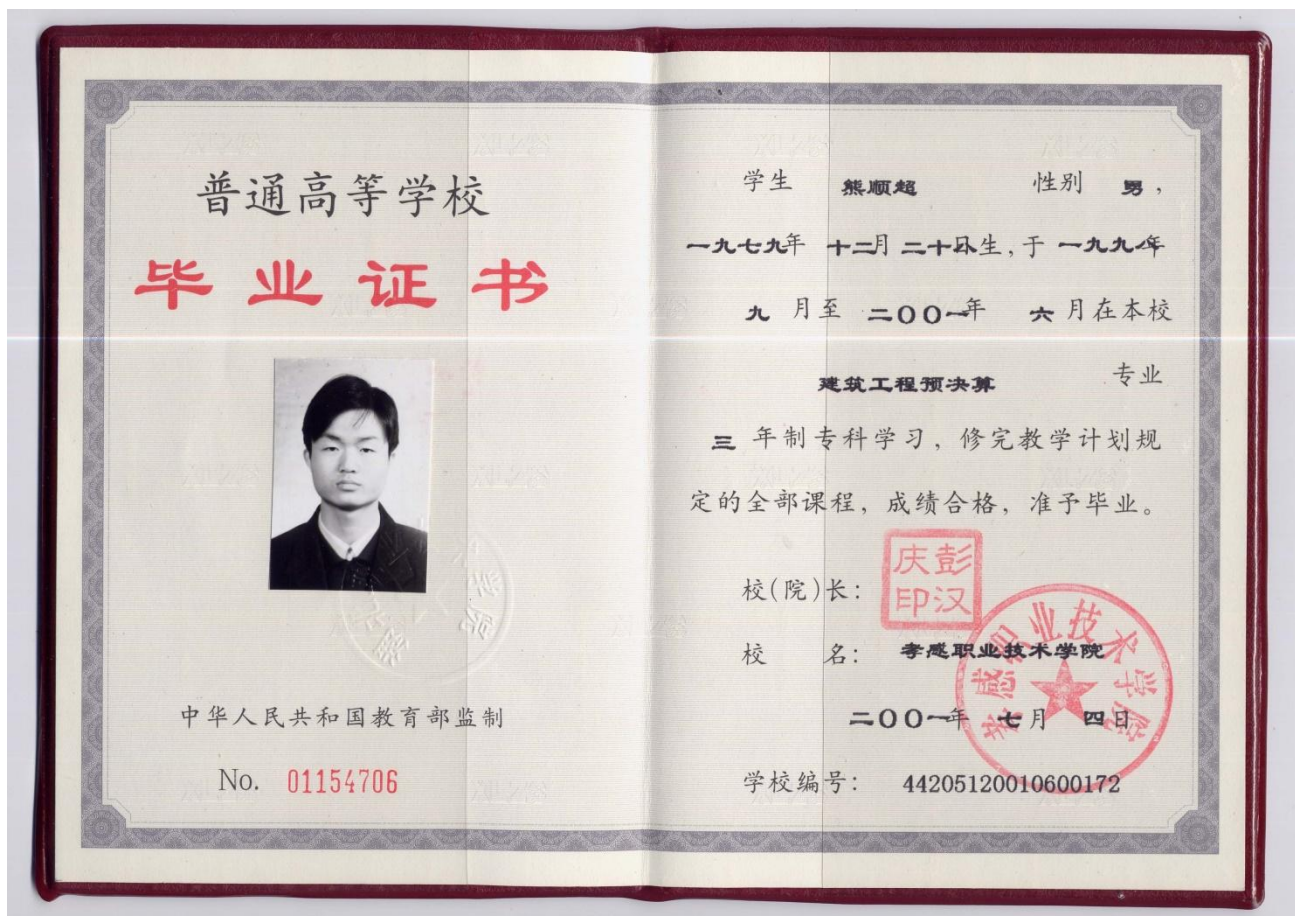 普通高等学校
毕业证书
中华人民共和国教育部监制
No. 01154706
学生 熊顺超 性别 男,
一九七九年 十二月 二十日生,于 一九九八年
九 月至 二〇〇一年 六 月在本校
建筑工程预决算 专业
三 年制专科学习,修完教学计划规
定的全部课程,成绩合格,准予毕业。
校(院)长:
彭汉庆印
校 名: 孝感职业技术学院
孝感职业技术学院
二〇〇一年 七 月 四 日
学校编号: 44205120010600172